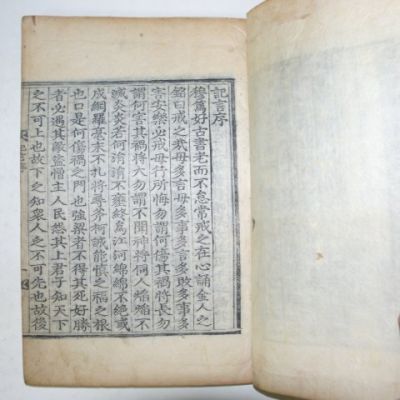 記言序
穆篤好古書老而不怠常戒之在心誦金人之
銘曰戒之哉毋多言毋多事多言多敗多事多
害安樂必戒毋行所悔勿謂何傷其禍將長勿
謂何害其禍將大勿謂不聞神將伺人焰焰不
滅炎炎若何涓涓不壅終爲江河綿綿不絶或
成網羅毫末不札將尋斧柯誠能愼之福之根
也口是何傷禍之門也強梁者不得其死好勝
者必遇其敵盜憎主人民怨其上君子知天下
之不可上也故下之知衆人之不可先也故後